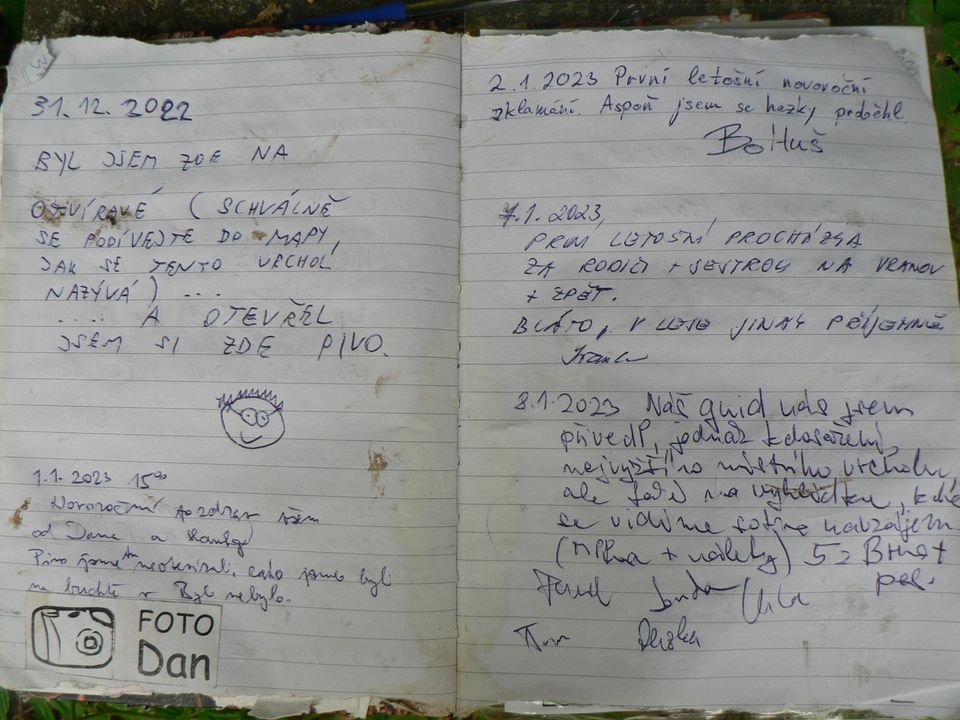 31. 12. 2022
BYL JSEM ZDE NA
OTVÍRAVÉ (SCHVÁLNĚ
SE PODÍVEJTE DO MAPY,
JAK SE TENTO VRCHOL
NAZÝVÁ) ...
.... A OTEVŘEL
JSEM SI ZDE PIVO.
1.1. 2023 15⁰⁰
Novoroční pozdrav všem
od Dana a
Pivo jsme tu neotevírali, zato jsme byli
na buchtě v Býl nebylo.
FOTO
Dan
2.1.2023 První letošní novoroční
zklamání. Aspoň jsem se hezky proběhl.
BoHuš
7.1. 2023,
PRVNÍ LETOŠNÍ PROCHÁZKA
ZA RODIČI + SESTROU NA VRANOV
+ ZPĚT.
BLÁTO, V LESE JINAK PŘÍJEMNĚ
8.1.2023 Náš guid nás sem
přivedl, jednak k dosažení
nejvyššího místního vrcholu
ale také na vyhlídku, kde
se vidíme navzájem
(mlha + nálety) 5z Brna +
pes.